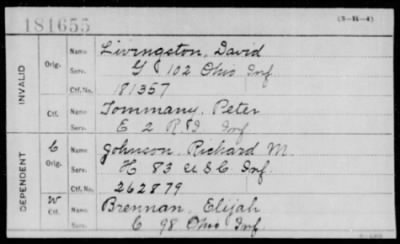 181655 (3-K-4)
INVALID
Orig. Name Livingston, David
Serv. G 102 Ohio Inf.
Ctf. No. 181357
Ctf. Name Tommany, Peter
Serv. E 2 R.I. Inf
DEPENDENT
C Orig. Name Johnson, Richard M.
Serv. H 83 U S C Inf.
Ctf. No. 262879
W Ctf. Name Brennan, Elijah
Serv. C 98 Ohio Inf.